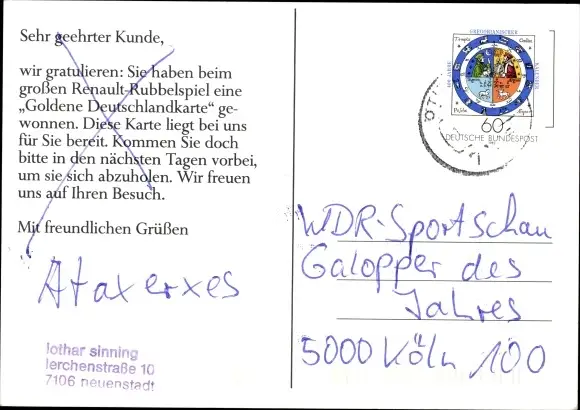 Sehr geehrter Kunde,
wir gratulieren: Sie haben beim
großen Renault-Rubbelspiel eine
„Goldene Deutschlandkarte“ ge-
wonnen. Diese Karte liegt bei uns
für Sie bereit. Kommen Sie doch
bitte in den nächsten Tagen vorbei,
um sie sich abzuholen. Wir freuen
uns auf Ihren Besuch.
Mit freundlichen Grüßen
Ataxerxes
lothar sinning
lerchenstraße 10
7106 neuenstadt
GREGORIANISCHER
KALENDER
60
DEUTSCHE BUNDESPOST
WDR-Sportschau
Galopper des
Jahres
5000 Köln 100